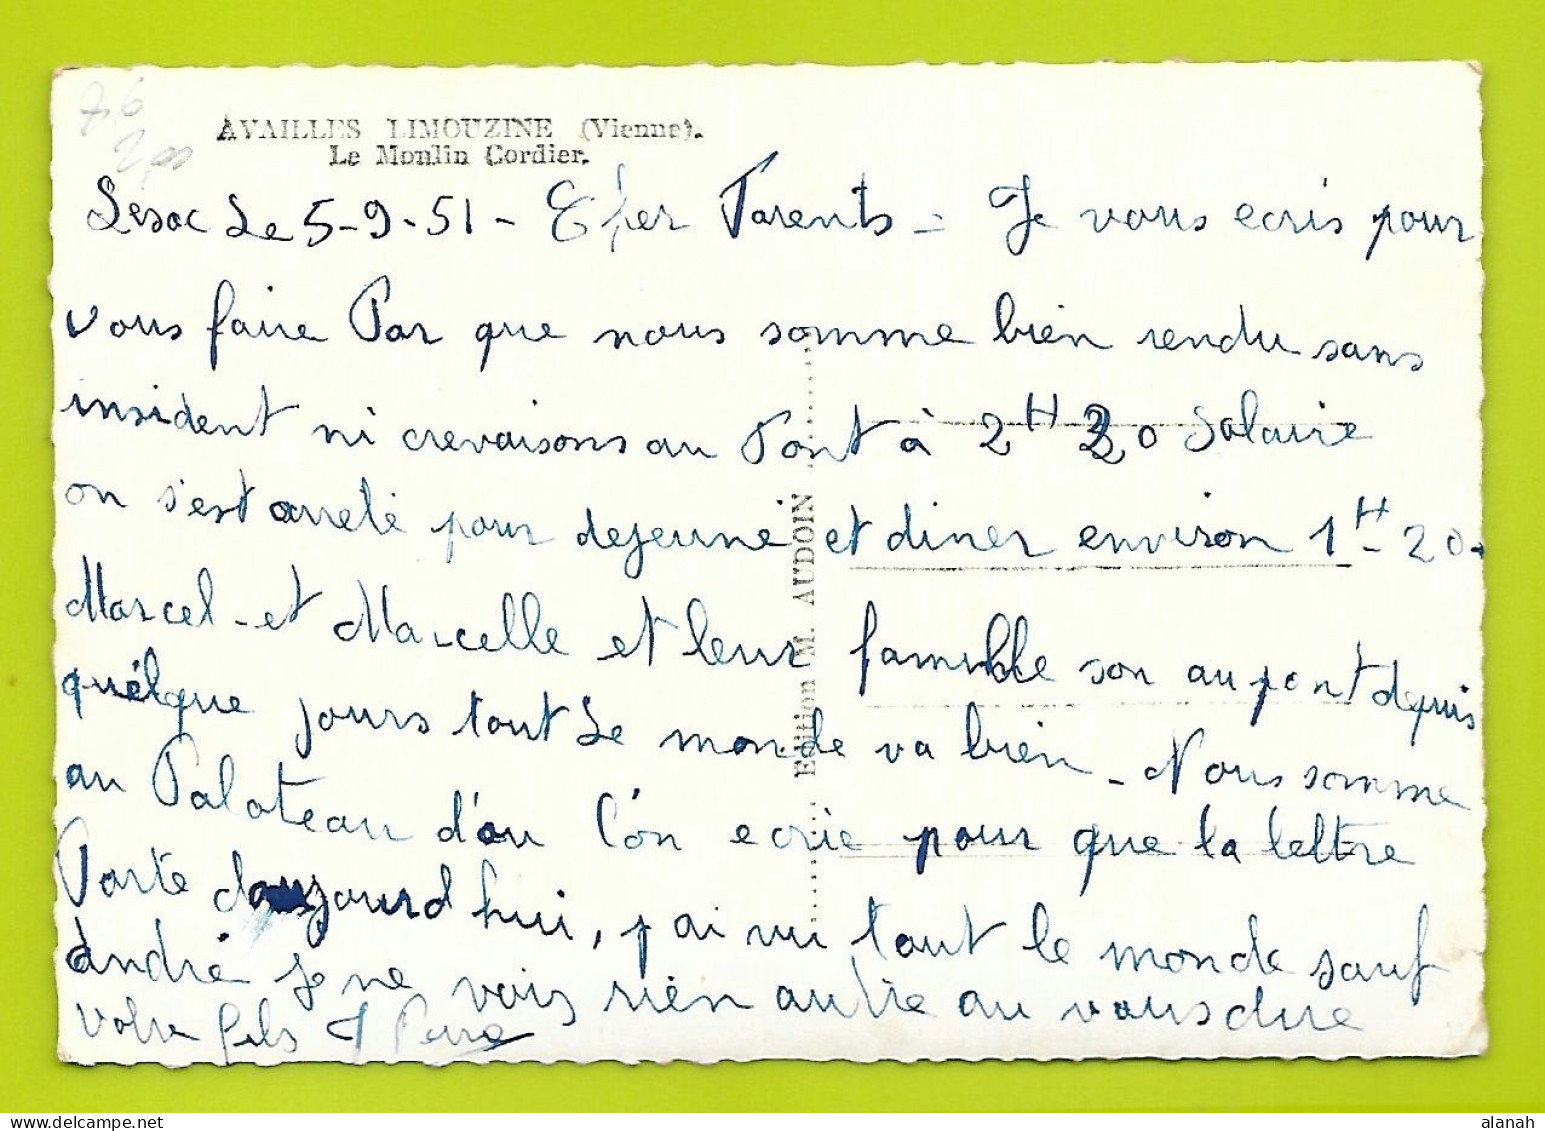 76
2,00
AVAILLES LIMOUZINE (Vienne).
Le Moulin Cordier.
Lesac Le 5-9-51 - Cher Parents = Je vous ecris pour
vous faire Par que nous somme bien rendu sans
insident ni crevaisons au Pont à 2H 20 Solaire
on s'est arreté pour dejeuné et diner environ 1H-20.
Marcel - et Marcelle et leur famille son au pont depuis
quélque jours tout Le monde va bien - Nous somme
au Paloteau d'ou l'on ecrie pour que la lettre
Parte daujourd hui, j'ai vu tout le monde sauf
André je ne vois rien autre au vous dire
Votre fils J Pierre
Edition M. AUDOIN
alanah